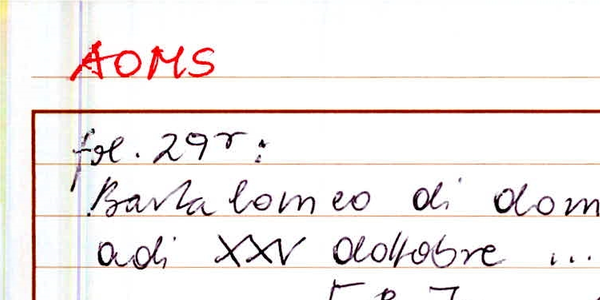 AOMS
fol. 29r:
Bartalomeo di dom
adi XXV dottobre ...